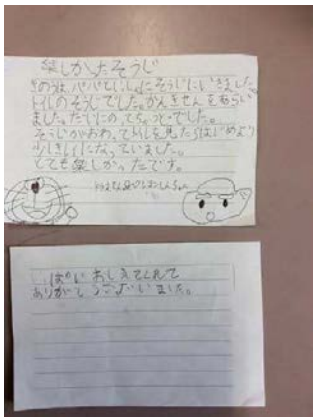 楽しかたそうじ
きのうは、パパといっしょにそうじにいきました。
トイレのそうじでした。かんきせんをもらい
ました。たいにのってちょっと でした。
そうじがおわってトイレを見たらはじめより
少しきれいになっていました。
とても楽しかったです。
いっぱい おしえてくれて
ありがとうございました。